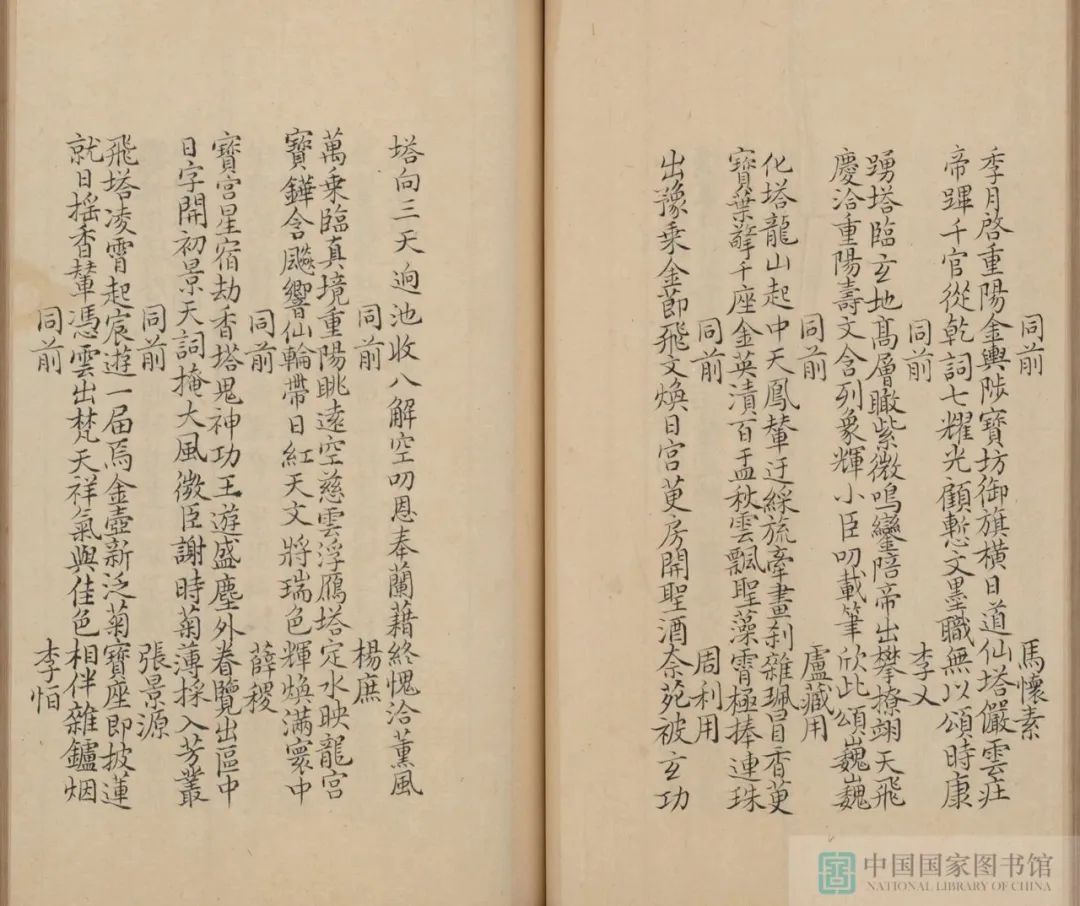 同前 馬懷素
季月啓重陽金輿陟寶坊御旗橫日道仙塔儼雲莊
帝蹕千官從乾詞七耀光顧慙文墨職無以頌時康
同前 李乂
踴塔臨玄地高層瞰紫微鳴鑾陪帝出攀橑翊天飛
慶洽重陽壽文含列象輝小臣叨載筆欣此頌巍巍
同前 盧藏用
化塔龍山起中天鳳輦迂綵旒牽畫刹雜珮冒香萸
寶葉擎千座金英漬百盂秋雲飄聖藻霄極捧連珠
同前 周利用
出豫乘金節飛文煥日宮萸房開聖酒柰苑被玄功
塔向三天迥池收八解空叨恩奉蘭藉終愧洽薰風
同前 楊庶
萬乘臨真境重陽眺遠空慈雲浮鴈塔定水映龍宮
寶鐸含飈響仙輪帶日紅天文將瑞色輝煥滿寰中
同前 薛稷
寶宮星宿劫香塔鬼神功王遊盛塵外眷覽出區中
日字開初景天詞掩大風微臣謝時菊薄採入芳叢
同前 張景源
飛塔凌霄起宸遊一屆焉金壺新泛菊寶座即披蓮
就日搖香輦憑雲出梵天祥氣與佳色相伴雜鑪烟
同前 李恒
中国国家图书馆
NATIONAL LIBRARY OF CHINA